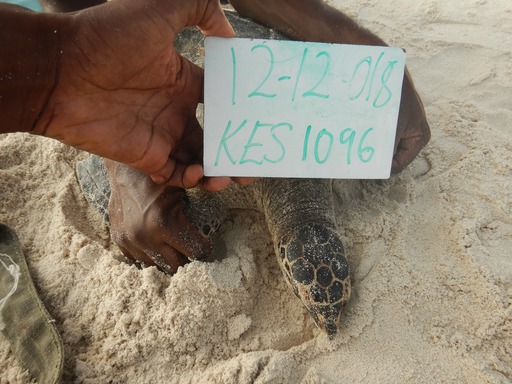 12-12-018
KES 1096